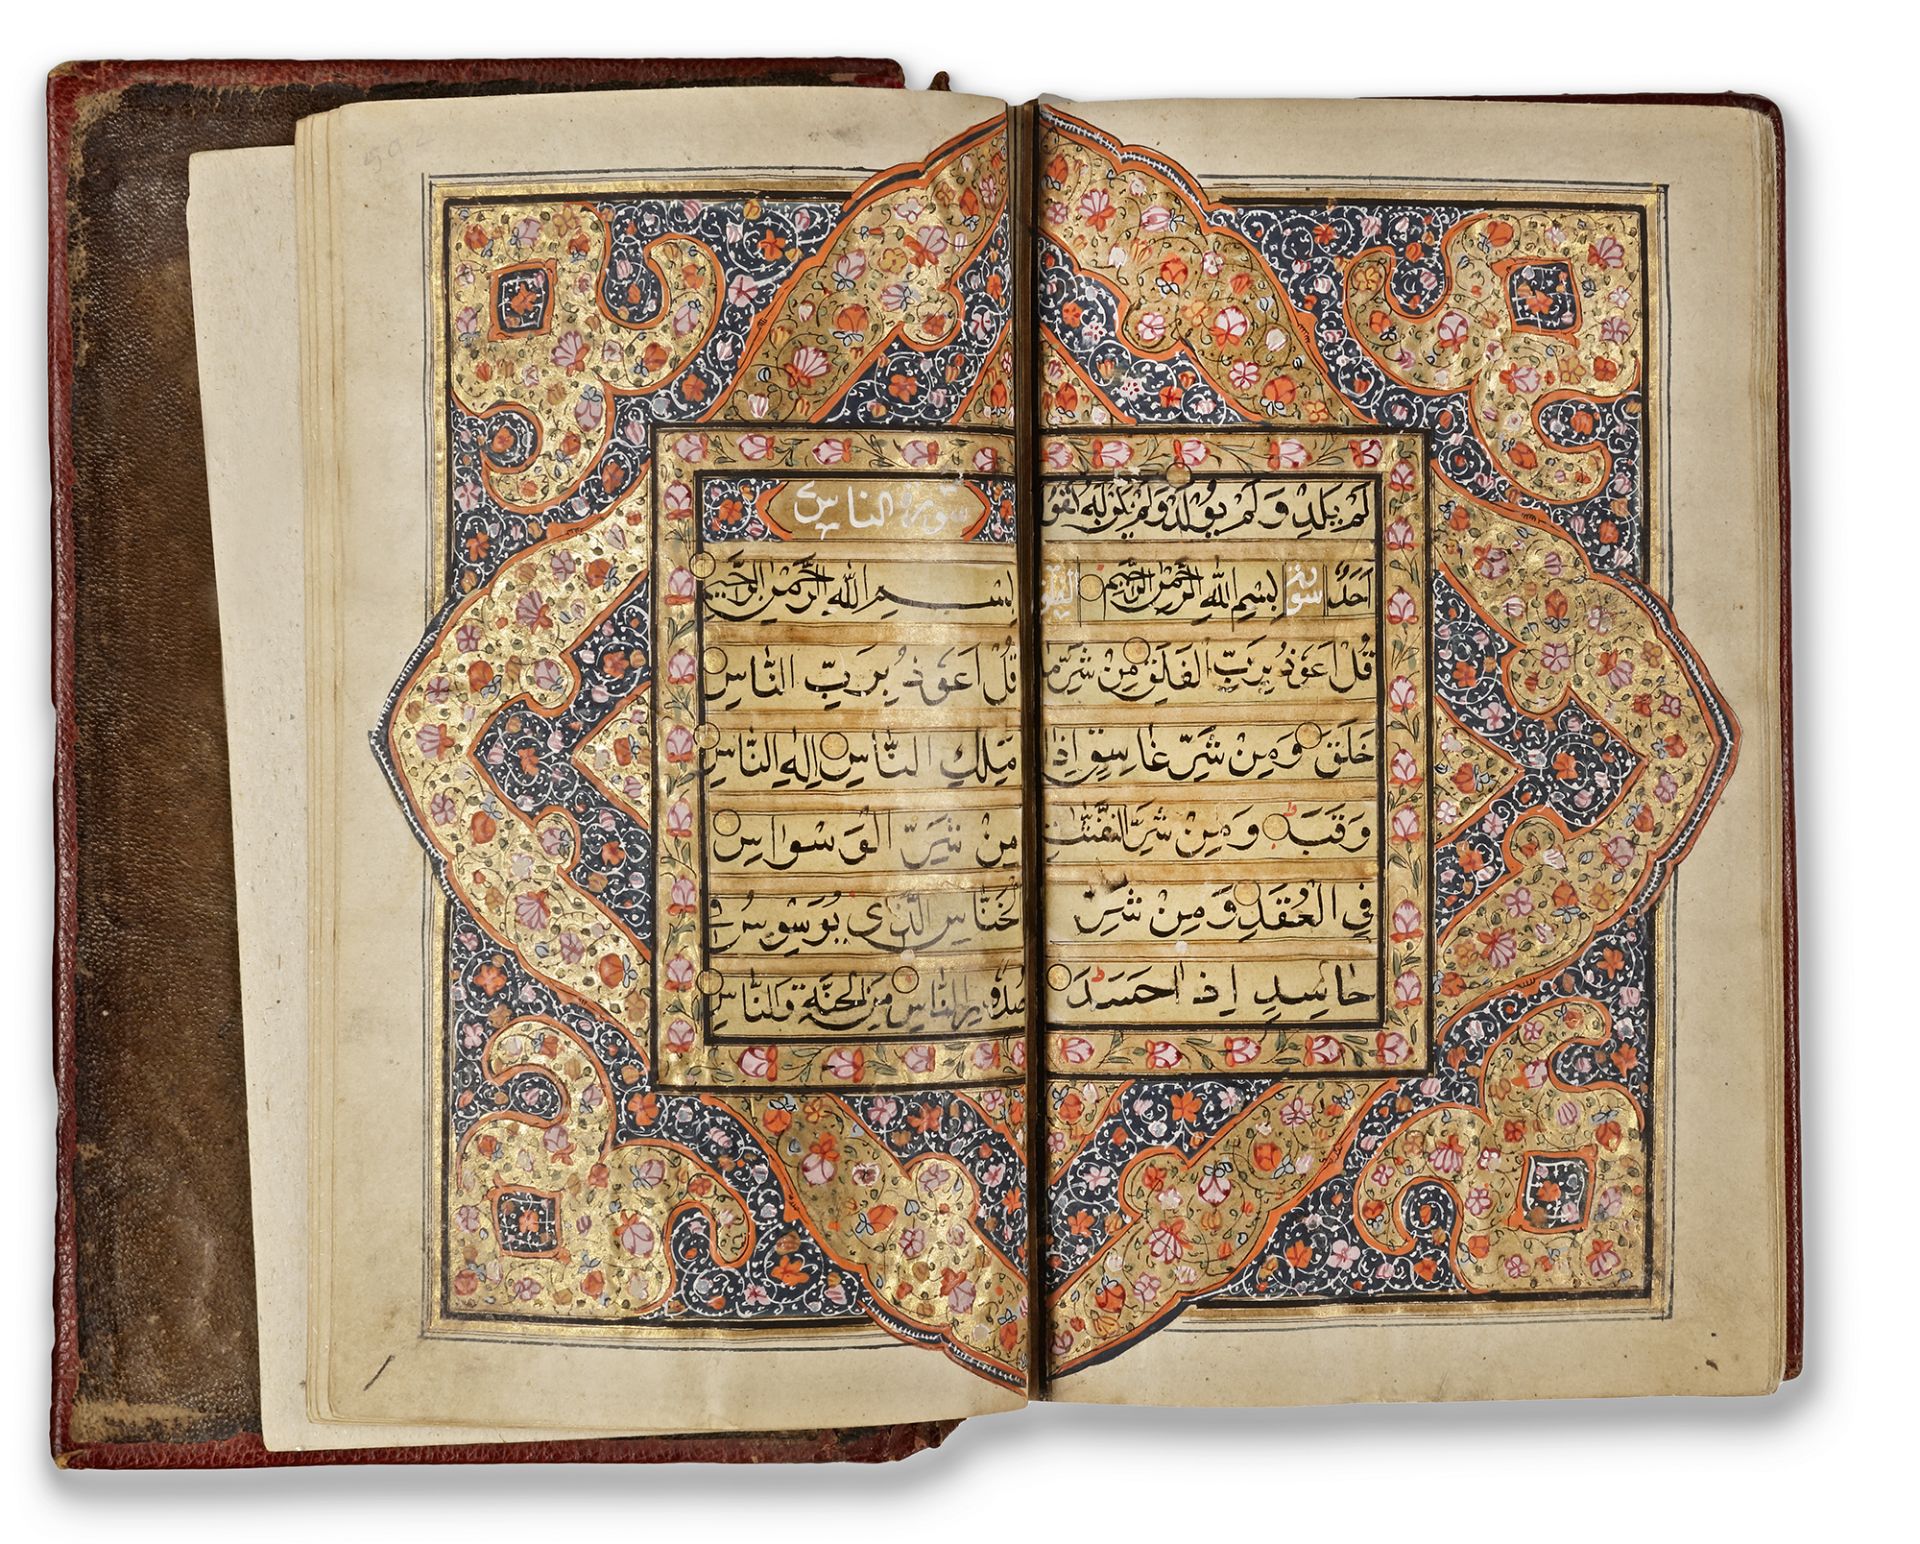 لَمْ يَلِدْ وَلَمْ يُولَدْ وَلَمْ يَكُنْ لَهُ كُفُوًا
اَحَدٌ سورة بِسْمِ اللهِ الرَّحْمٰنِ الرَّحِيمِ الفلق
قُلْ اَعُوْذُ بِرَبِّ الْفَلَقِ مِنْ شَرِّ مَا
خَلَقَ وَمِنْ شَرِّ غَاسِقٍ اِذَا
وَقَبَ وَمِنْ شَرِّ النَّفّٰثٰتِ
فِي الْعُقَدِ وَمِنْ شَرِّ
حَاسِدٍ اِذَا حَسَدَ
سورة الناس
بِسْمِ اللهِ الرَّحْمٰنِ الرَّحِيمِ
قُلْ اَعُوْذُ بِرَبِّ النَّاسِ
مَلِكِ النَّاسِ اِلٰهِ النَّاسِ
مِنْ شَرِّ الْوَسْوَاسِ
الْخَنَّاسِ الَّذِي يُوَسْوِسُ فِي
صُدُوْرِ النَّاسِ مِنَ الْجِنَّةِ وَالنَّاسِ